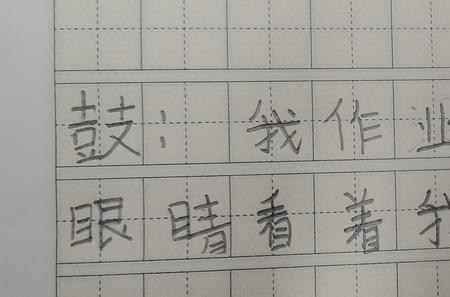 鼓：我作业
眼睛看着我